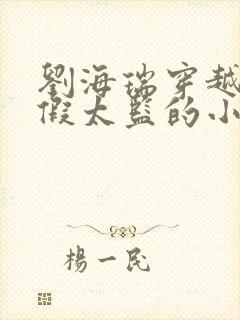 劉海瑞穿越
假太監的小
楊一民